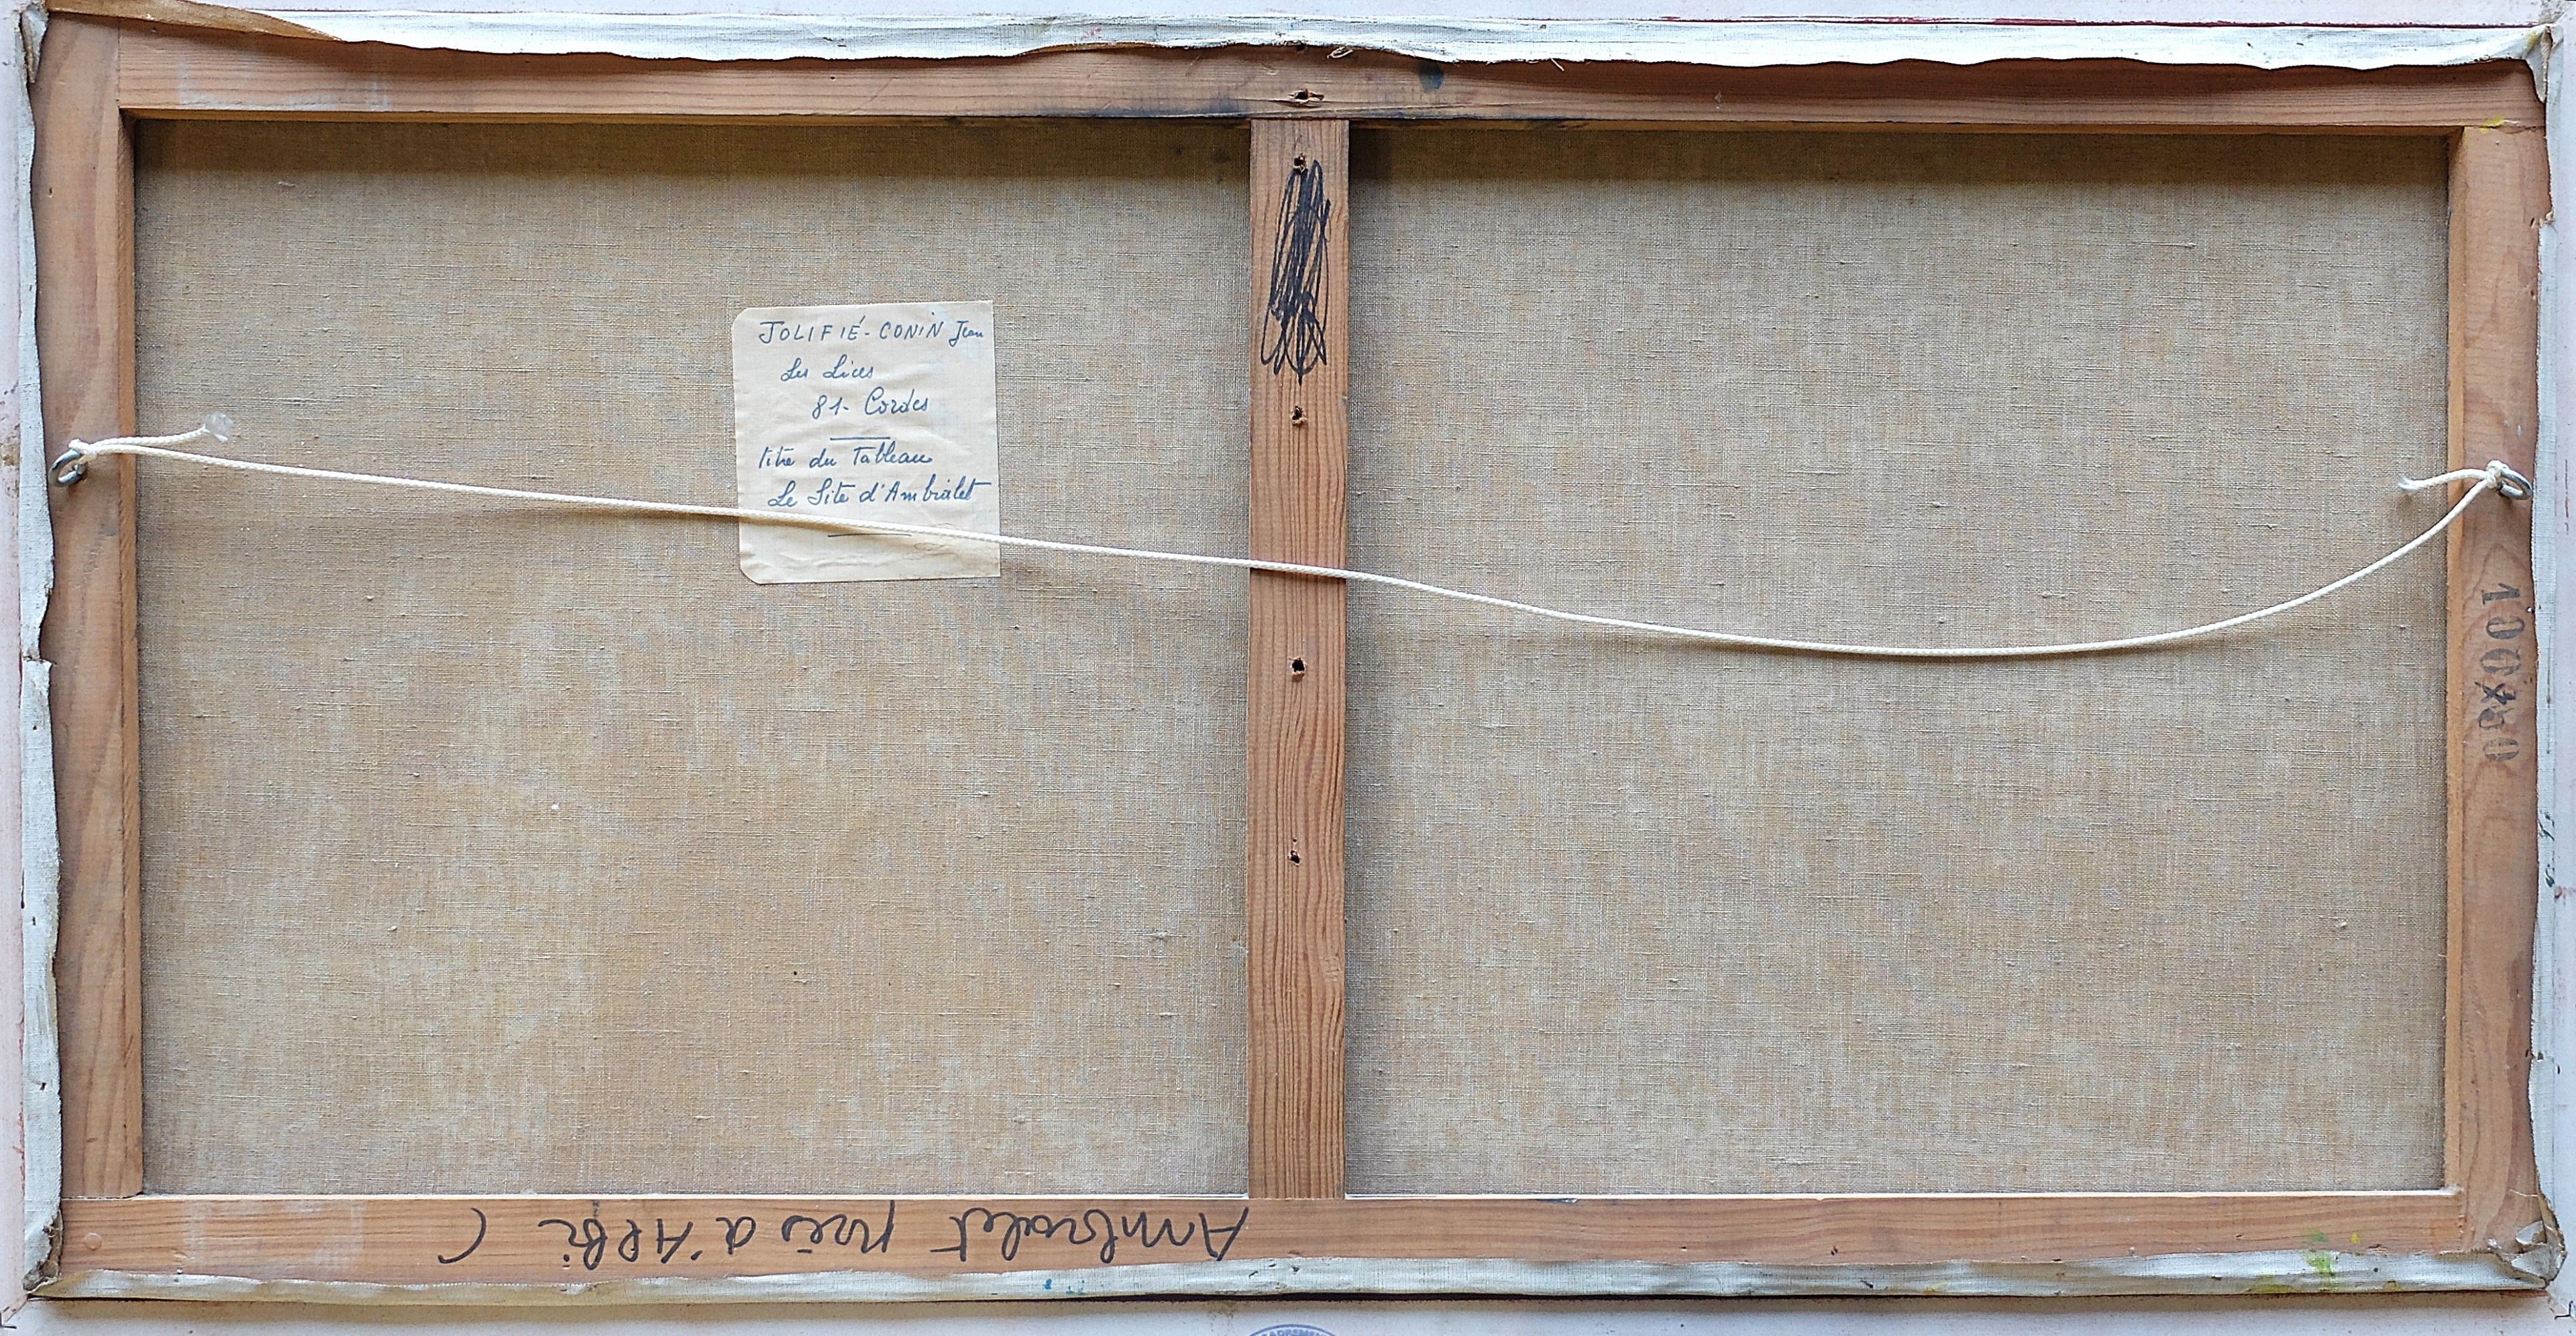 JOLIFIÉ-CONIN Jean
Les Lices
81- Cordes
titre du Tableau
Le Site d'Ambialet
100x50
Ambialet près d'Albi (